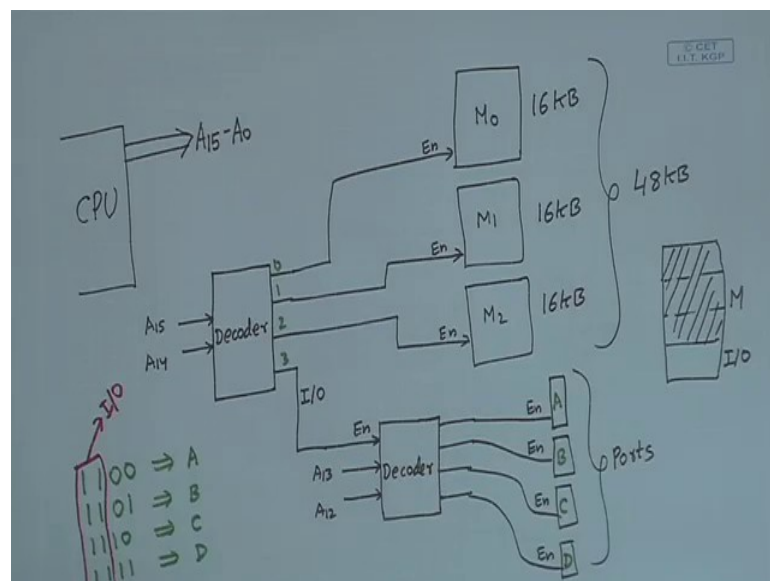 © CET
I.I.T. KGP
A15-A0
CPU
Decoder
A15
A14
0
1
2
3
En
M0
16KB
En
M1
16KB
En
M2
16KB
48KB
M
I/O
I/O
En
A13
A12
Decoder
En A
En B
En C
En D
Ports
I/O
1100 ⇒ A
1101 ⇒ B
1110 ⇒ C
1111 ⇒ D